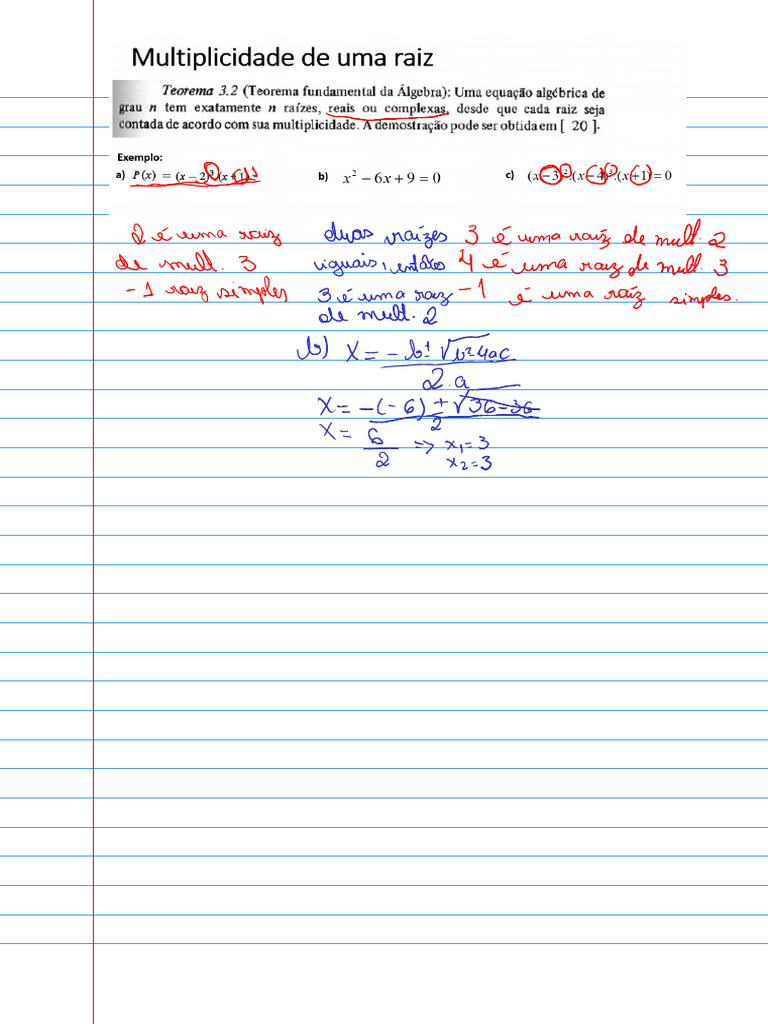 Multiplicidade de uma raiz
Teorema 3.2 (Teorema fundamental da Álgebra): Uma equação algébrica de
grau n tem exatamente n raízes, reais ou complexas, desde que cada raiz seja
contada de acordo com sua multiplicidade. A demostração pode ser obtida em [ 20 ].
Exemplo:
a) P(x) = (x − 2)³(x + 1)
b) x² − 6x + 9 = 0
c) (x − 3)².(x − 4)³.(x + 1) = 0
2 é uma raiz
de mult. 3
-1 raiz simples
duas raízes
iguais, então
3 é uma raiz
de mult. 2
3 é uma raiz de mult. 2
4 é uma raiz de mult. 3
-1 é uma raiz simples.
b) X = -b ± √b²-4ac
2.a
X = -(-6) ± √36-36
2
X = 6
2
=> x₁=3
x₂=3